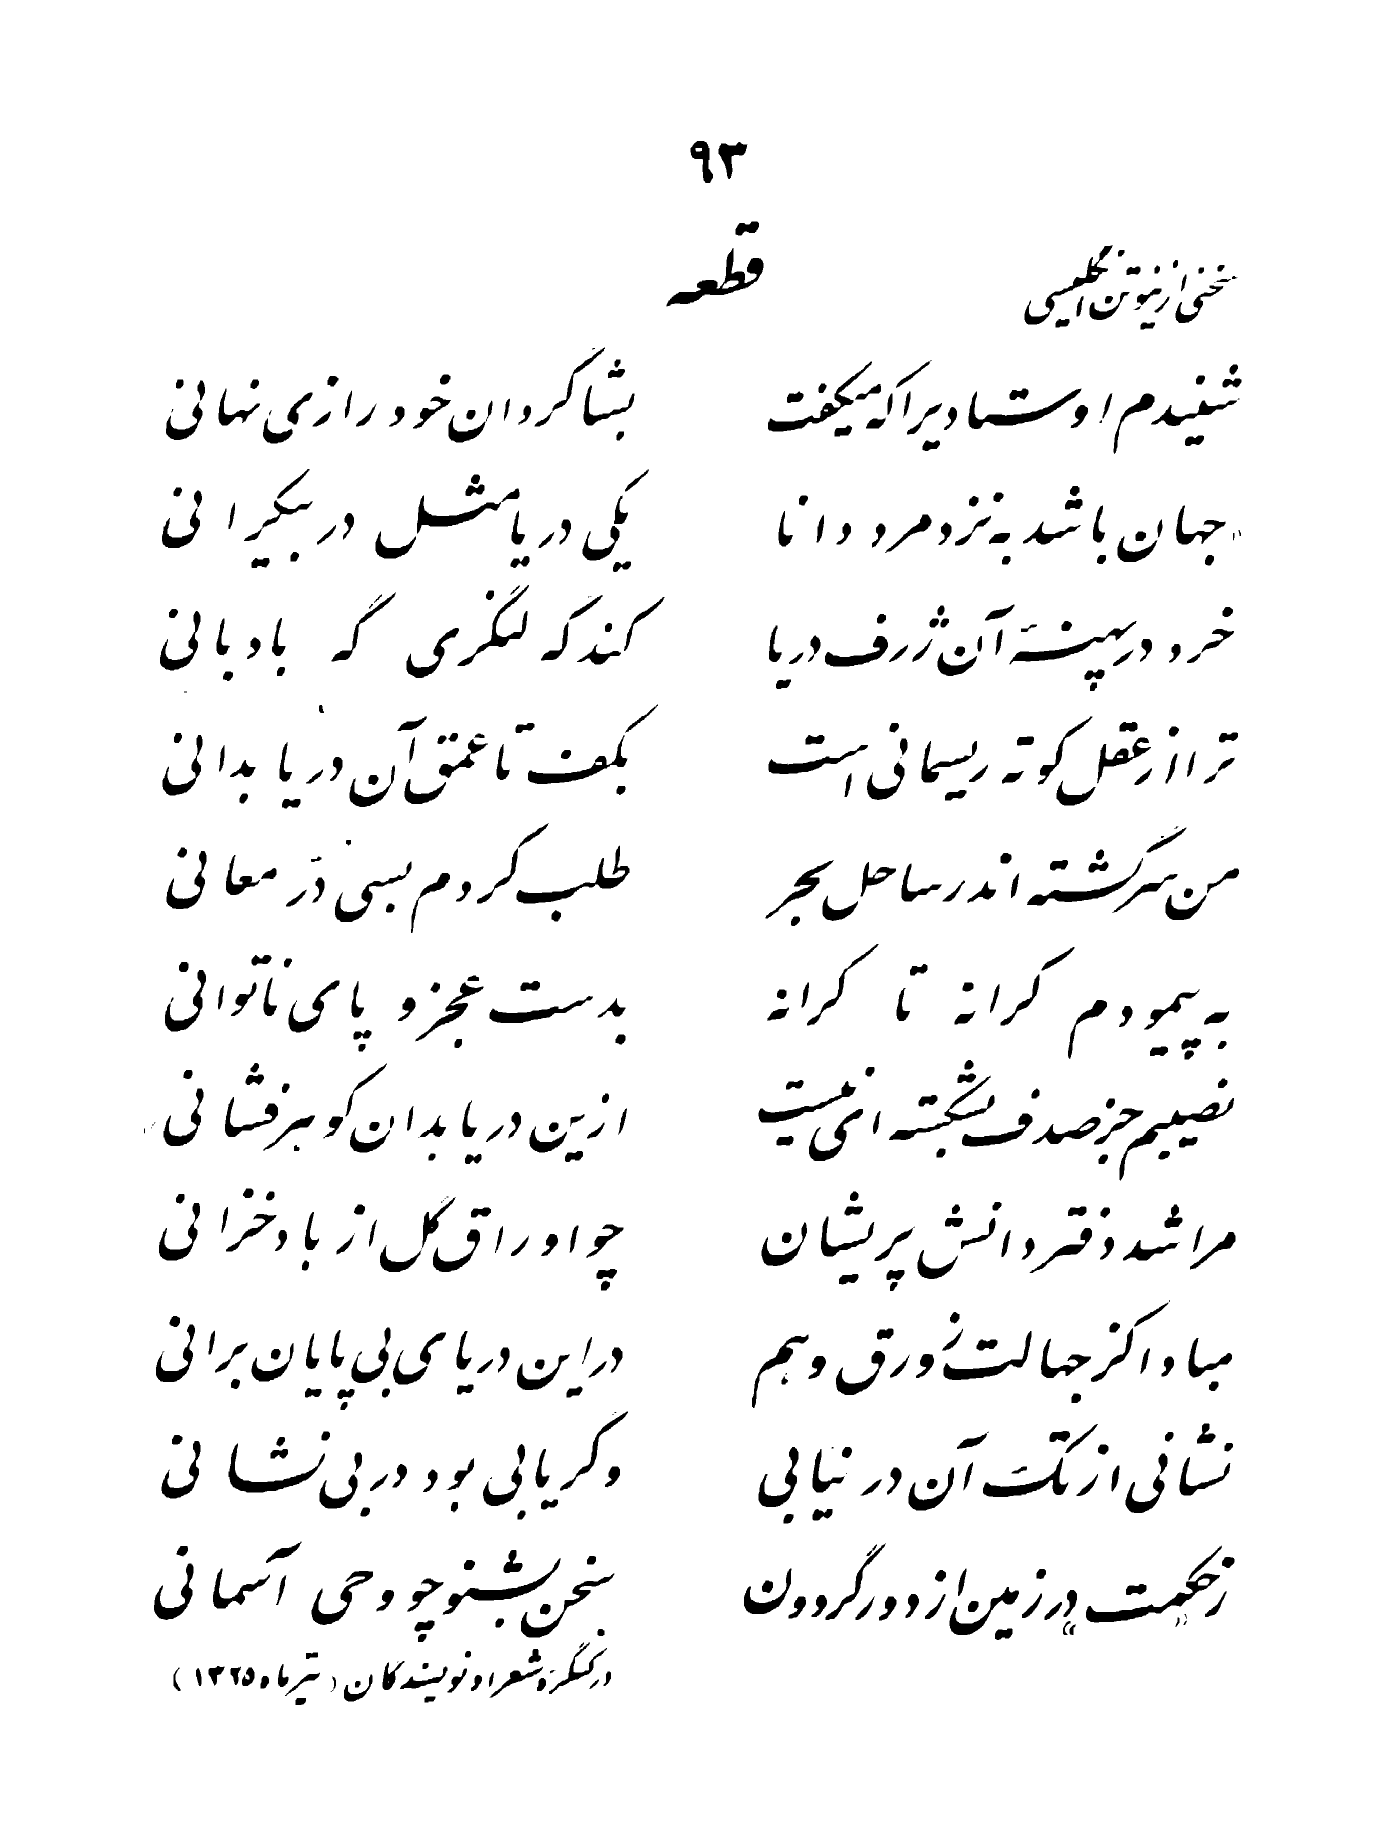 ۹۳
قطعه
سخنی از نیوتن انگلیسی
شنیدم اوستادیرا که میگفت بشاگردان خود رازی نهانی
«جهان باشد به نزد مرد دانا یکی دریا مثل در بیکرانی
خرد در پهنهٔ آن ژرف دریا کند گه لنگری گه بادبانی
ترا از عقل کوته ریسمانی است بکف تا عمق آن دریا بدانی
من سرگشته اندر ساحل بحر طلب کردم بسی دُرّ معانی
به پیمودم کرانه تا کرانه بدست عجز و پای ناتوانی
نصیبم جز صدف بشکسته ای نیست ازین دریا بدان گوهرفشانی»
مرا شد دفتر دانش پریشان چو اوراق گل از باد خزانی
مبادا کز جهالت زورق وهم در این دریای بی پایان برانی
نشانی از تک آن در نیابی وگر یابی بود در بی نشانی
ز «حکمت» در زمین از دور گردون سخن بشنو چو وحی آسمانی
در کنگرهٔ شعرا و نویسندگان (تیر ماه ۱۳۲۵)